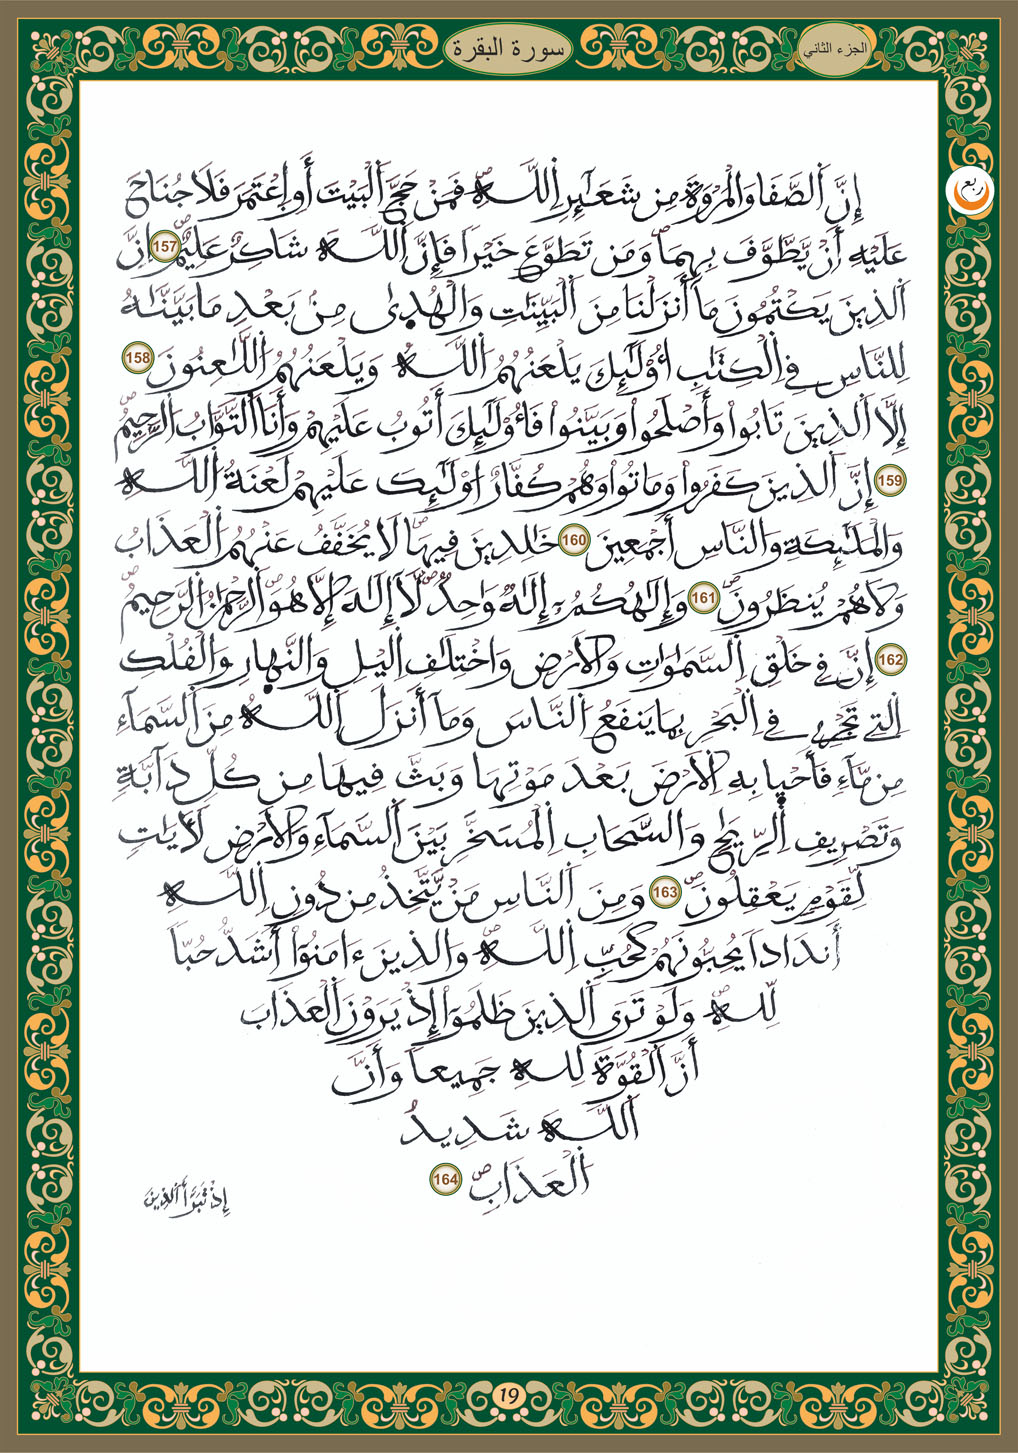 الجزء الثاني
سورة البقرة
ربع
إِنَّ اَلصَّفَا وَالْمَرْوَةَ مِن شَعَآئِرِ اِللَّهِۖ فَمَنْ حَجَّ اَلْبَيْتَ أَوِ اِعْتَمَرَ فَلَا جُنَاحَ
عَلَيْهِ أَنْ يَّطَّوَّفَ بِهِمَاۖ وَمَن تَطَوَّعَ خَيْراً فَإِنَّ اَللَّهَ شَاكِرٌ عَلِيمٌۖ 157 اِنَّ
اَلذِينَ يَكْتُمُونَ مَآ أَنزَلْنَا مِنَ اَلْبَيِّنَٰتِ وَالْهُدۭىٰ مِنۢ بَعْدِ مَا بَيَّنَّٰهُ
لِلنَّاسِ فِے اِلْكِتَٰبِ أُوْلَٰٓئِكَ يَلْعَنُهُمُ اُللَّهُ وَيَلْعَنُهُمُ اُللَّٰعِنُونَ 158
إِلَّا اَلذِينَ تَابُواْ وَأَصْلَحُواْ وَبَيَّنُواْ فَأُوْلَٰٓئِكَ أَتُوبُ عَلَيْهِمْ وَأَنَا اَلتَّوَّابُ اُلرَّحِيمُۖ
159 إِنَّ اَلذِينَ كَفَرُواْ وَمَاتُواْ وَهُمْ كُفَّارٌ اُوْلَٰٓئِكَ عَلَيْهِمْ لَعْنَةُ اُللَّهِ
وَالْمَلَٰٓئِكَةِ وَالنَّاسِ أَجْمَعِينَ 160 خَٰلِدِينَ فِيهَاۖ لَا يُخَفَّفُ عَنْهُمُ اُلْعَذَابُ
وَلَا هُمْ يُنظَرُونَۖ 161 وَإِلَٰهُكُمُۥٓ إِلَٰهٌ وَٰحِدٌۖ لَّآ إِلَٰهَ إِلَّا هُوَۖ اَلرَّحْمَٰنُ اُلرَّحِيمُۖ
162 إِنَّ فِے خَلْقِ اِلسَّمَٰوَٰتِ وَالَارْضِ وَاخْتِلَٰفِ اِليْلِ وَالنَّهارِ وَالْفُلْكِ
اِلتِے تَجْرِے فِے اِلْبَحْرِ بِمَا يَنفَعُ اُلنَّاسَ وَمَآ أَنزَلَ اَللَّهُ مِنَ اَلسَّمَآءِ
مِن مَّآءٍ فَأَحْيا بِهِ اِلَارْضَ بَعْدَ مَوْتِهَا وَبَثَّ فِيهَا مِن كُلِّ دَآبَّةٍ
وَتَصْرِيفِ اِلرِّيَٰحِ وَالسَّحَابِ اِلْمُسَخَّرِ بَيْنَ اَلسَّمَآءِ وَالَارْضِ لَأٓيَٰتٍ
لِّقَوْمٍ يَعْقِلُونَۖ 163 وَمِنَ اَلنَّاسِ مَنْ يَّتَّخِذُ مِن دُونِ اِللَّهِ
أَندَاداً يُحِبُّونَهُمْ كَحُبِّ اِللَّهِۖ وَالذِينَ ءَامَنُوٓاْ أَشَدُّ حُبّاً
لِّلهِۖ وَلَوْ تَرَى اَلذِينَ ظَلَمُوٓاْ إِذْ يَرَوْنَ اَلْعَذَابَ
أَنَّ اَلْقُوَّةَ لِلهِ جَمِيعاً وَأَنَّ
اَللَّهَ شَدِيدُ
اُلْعَذَابِۖ 164
إِذْ تَبَرَّأَ اَلذِينَ
19